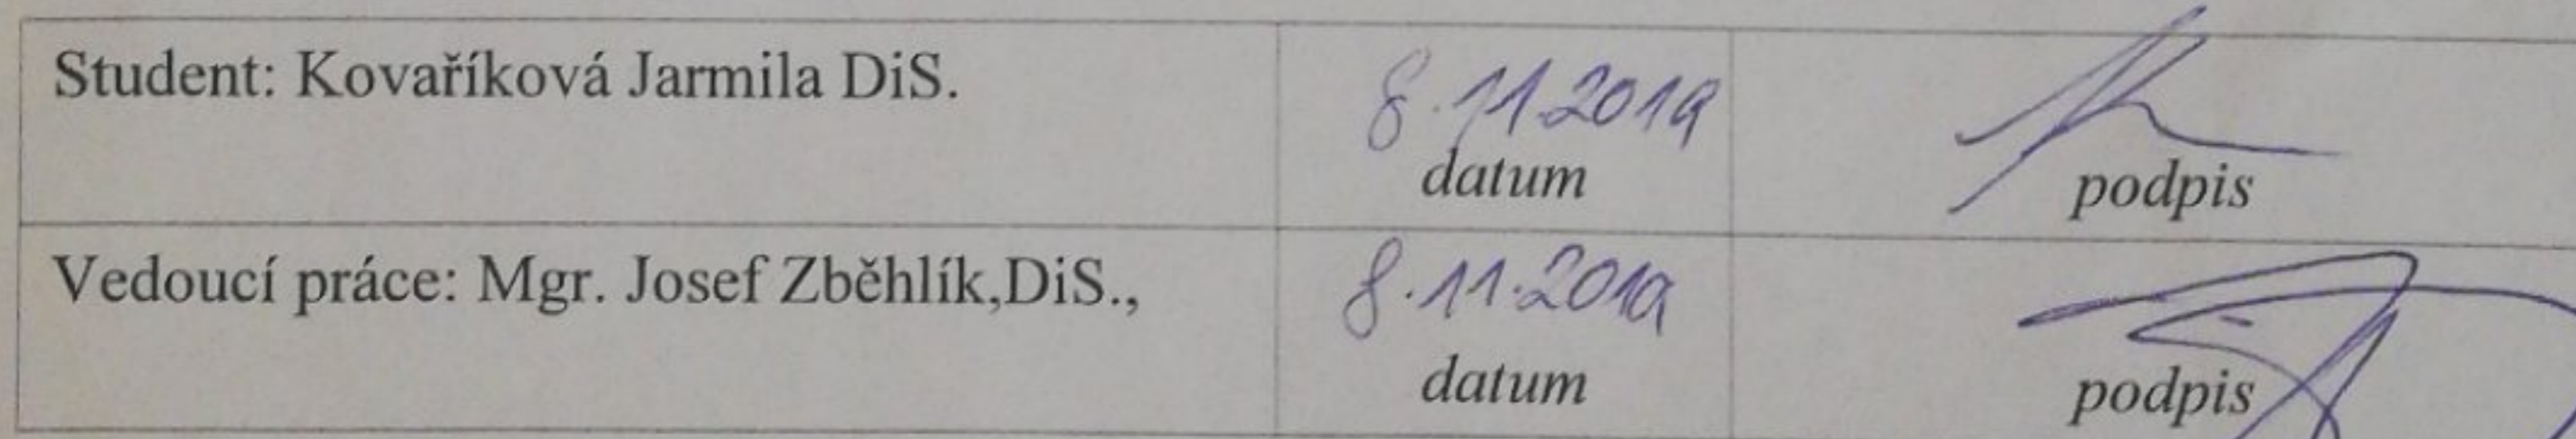 Student: Kovaříková Jarmila DiS.
8.11.2019
datum
podpis
Vedoucí práce: Mgr. Josef Zběhlík,DiS.,
8.11.2019
datum
podpis